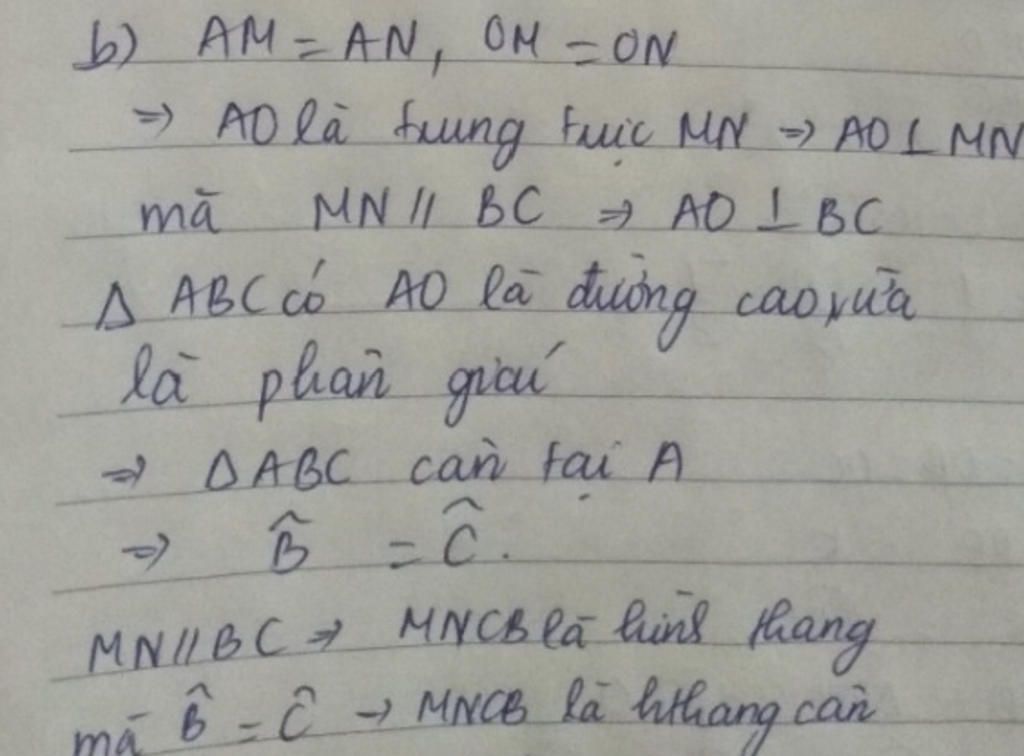 b) AM = AN, OM = ON
⇒ AO là trung trực MN ⇒ AO ⊥ MN
mà MN // BC ⇒ AO ⊥ BC
Δ ABC có AO là đường cao, vừa
là phân giác
⇒ ΔABC cân tại A
⇒ B̂ = Ĉ.
MN // BC ⇒ MNCB là hình thang
mà B̂ = Ĉ → MNCB là hthang cân